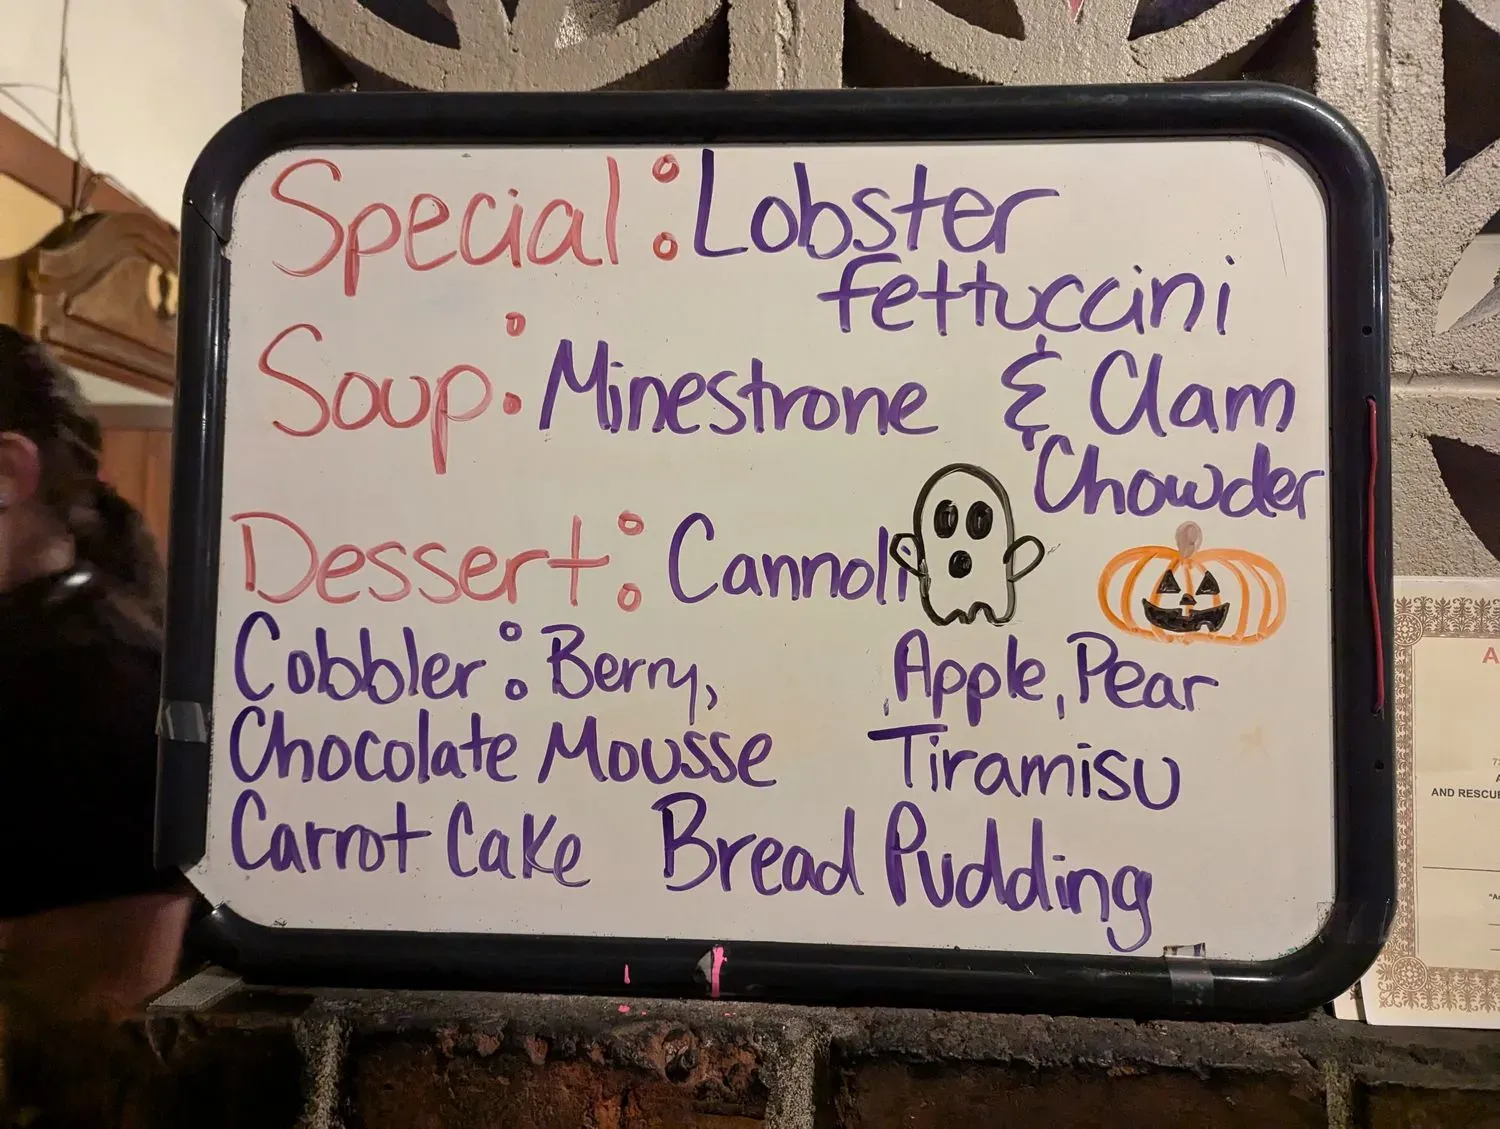 Special: Lobster
fettuccini
Soup: Minestrone & Clam
Chowder
Dessert: Cannoli
Cobbler: Berry, , Apple, Pear
Chocolate Mousse Tiramisu
Carrot Cake Bread Pudding
AND RESCUE